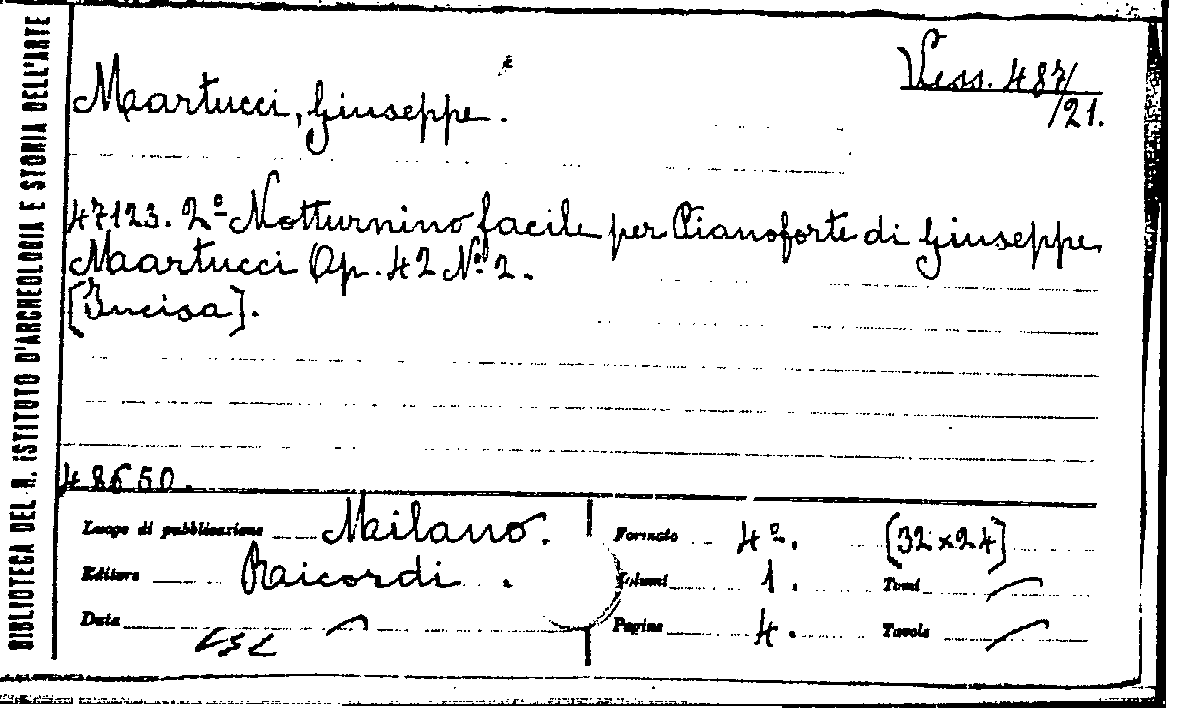 BIBLIOTECA DEL R. ISTITUTO D'ARCHEOLOGIA E STORIA DELL'ARTE
Martucci, Giuseppe.
Vess. 487/
/21.
47123. 2º Notturnino facile per Pianoforte di Giuseppe
Martucci Op. 42 Nº 2.
[Incisa].
48650.
Luogo di pubblicazione Milano.
Editore Ricordi.
Data
Formato 4º. [32x24]
Volumi 1. Tomi
Pagine 4. Tavole